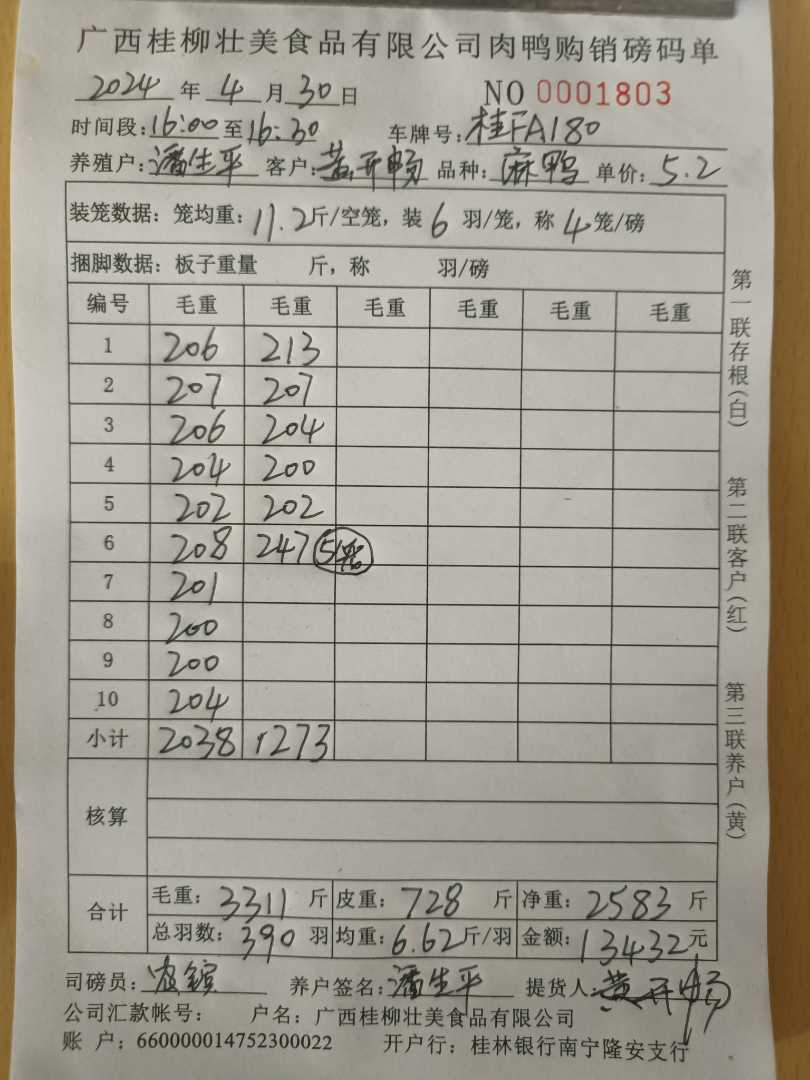 广西桂柳壮美食品有限公司肉鸭购销磅码单
2024 年 4 月 30 日 NO 0001803
时间段: 16:00 至 16:30 车牌号: 桂FA180
养殖户: 潘生平 客户: 黄开畅 品种: 麻鸭 单价: 5.2
装笼数据: 笼均重: 11.2 斤/空笼, 装 6 羽/笼, 称 4 笼/磅
捆脚数据: 板子重量 斤, 称 羽/磅
编号 毛重 毛重 毛重 毛重 毛重 毛重
1 206 213
2 207 207
3 206 204
4 204 200
5 202 202
6 208 247 5笼
7 201
8 200
9 200
10 204
小计 2038 1273
核算
合计 毛重: 3311 斤 皮重: 728 斤 净重: 2583 斤
总羽数: 390 羽 均重: 6.62 斤/羽 金额: 13432 元
司磅员: 养户签名: 潘生平 提货人: 黄开畅
公司汇款帐号: 户名: 广西桂柳壮美食品有限公司
账 户: 660000014752300022 开户行: 桂林银行南宁隆安支行
第一联存根(白)
第二联客户(红)
第三联养户(黄)